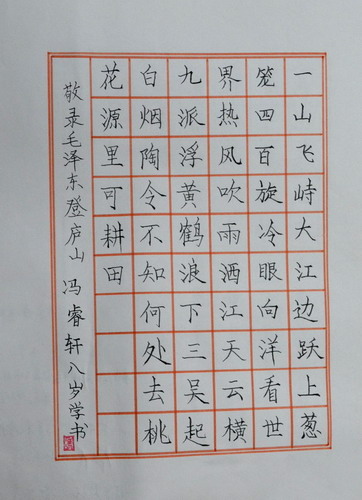 一山飞峙大江边跃上葱
笼四百旋冷眼向洋看世
界热风吹雨洒江天云横
九派浮黄鹤浪下三吴起
白烟陶令不知何处去桃
花源里可耕田
敬录毛泽东登庐山 冯睿轩八岁学书